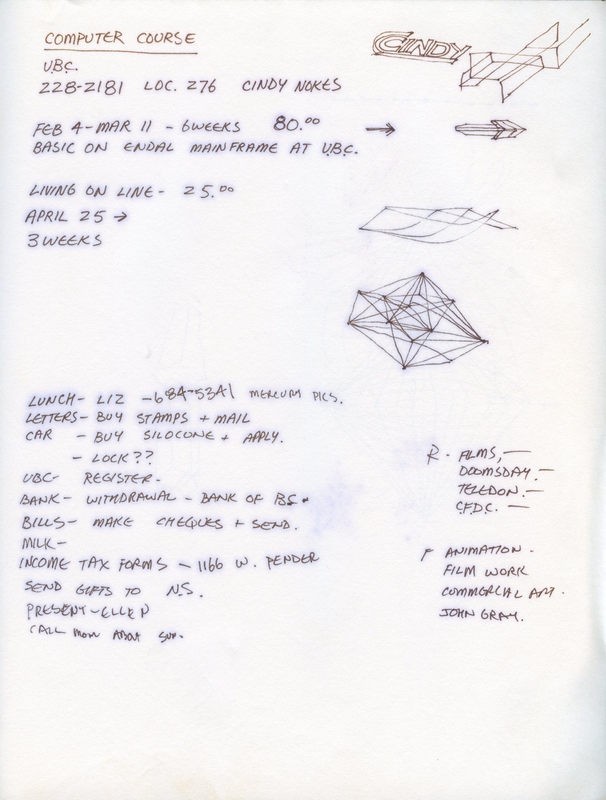 COMPUTER COURSE
CINDY
U.B.C.
228-2181 LOC. 276 CINDY NOKES
FEB 4 - MAR 11 - 6 WEEKS 80.00 →
BASIC ON ENDAL MAINFRAME AT U.B.C.
LIVING ON LINE - 25.00
APRIL 25 →
3 WEEKS
LUNCH - LIZ - 684-5341 MERCURY PICS.
LETTERS - BUY STAMPS + MAIL
CAR - BUY SILOCONE + APPLY.
- LOCK??
UBC - REGISTER -
BANK - WITHDRAWAL - BANK OF B.S.
BILLS - MAKE CHEQUES + SEND.
MILK -
INCOME TAX FORMS - 1166 W. PENDER
SEND GIFTS TO N.S.
PRESENT - ELLEN
CALL MOM ABOUT
R. FILMS, —
DOOMSDAY. —
TELEDON. —
C.F.D.C. —
ANIMATION -
FILM WORK
COMMERCIAL ART.
JOHN GRAY.